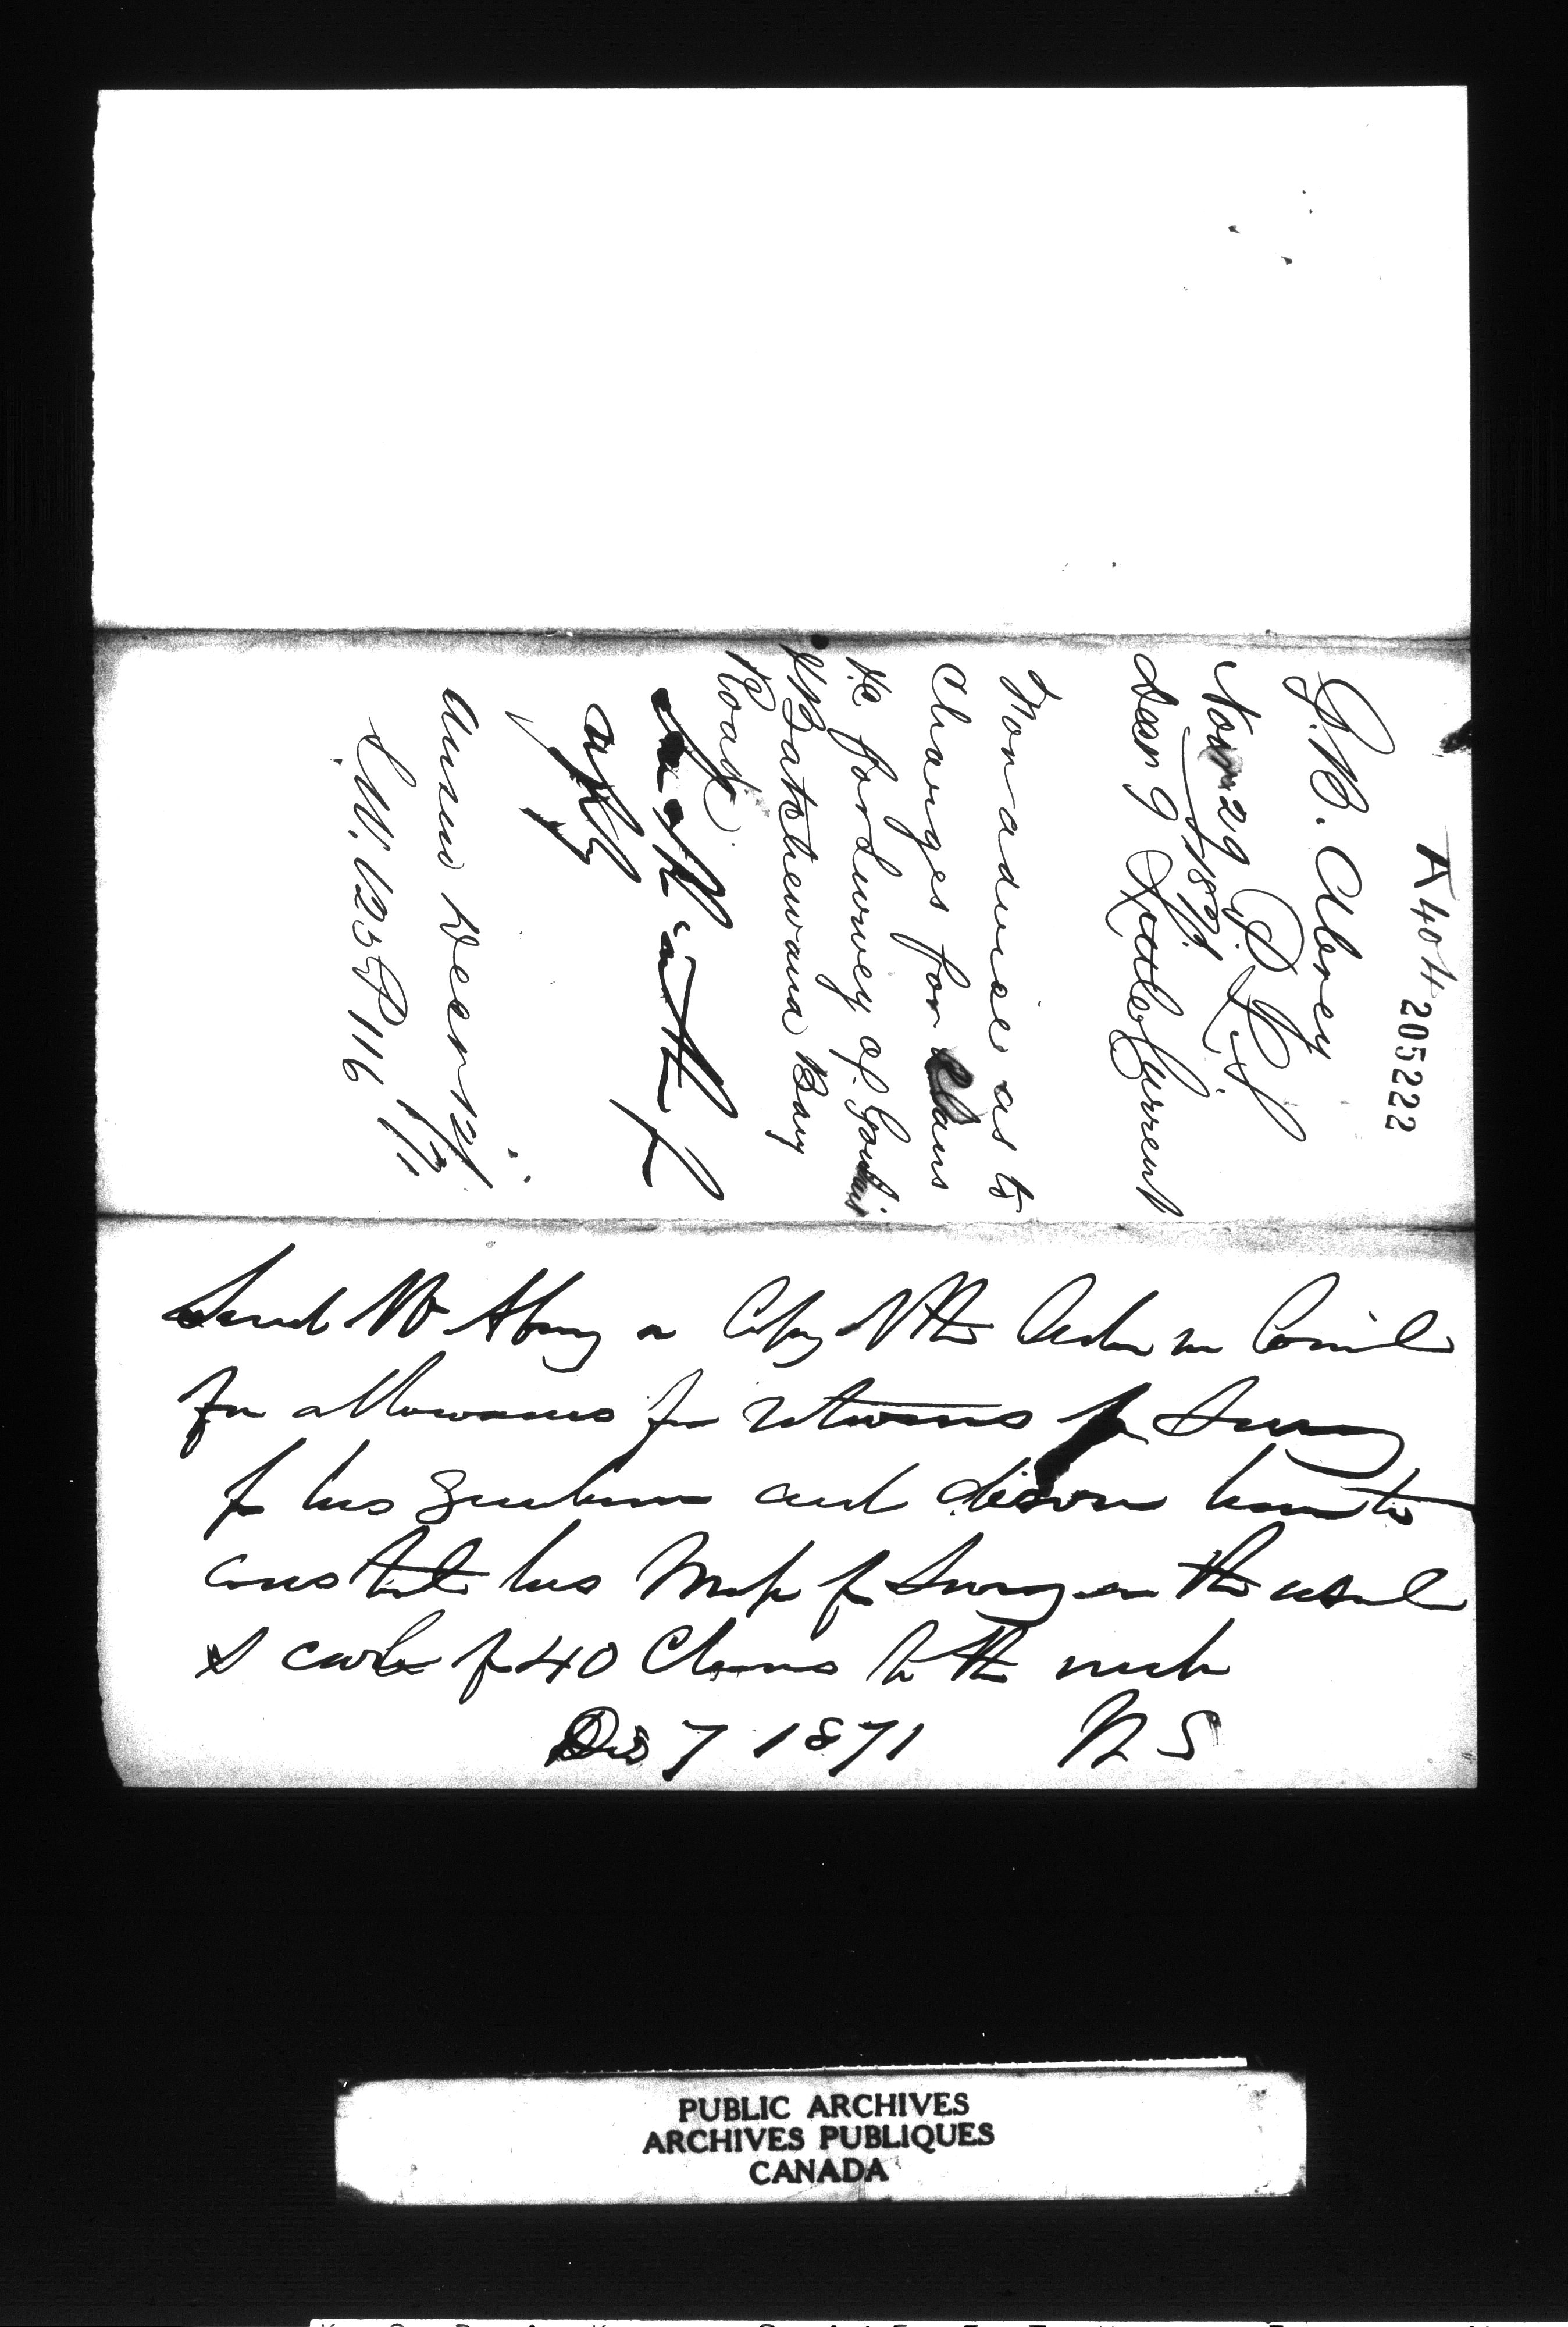 A 404
205222
G. B. Abrey
P. L. S.
Nov 29 1871
Little Current
For advice as to
Charges for Plans
&c for Survey of Goulais
& Batchewana Bay
Road
Answd Decr 12/71
L.W. 125 P 116
Send Mr Abrey a Copy of the Order in Council
for allowances for returns of Survey
for his guidance and him to
construct his Map of Survey on the usual
Scale of 40 Chains to the inch
Dec 7 1871 W S
PUBLIC ARCHIVES
ARCHIVES PUBLIQUES
CANADA